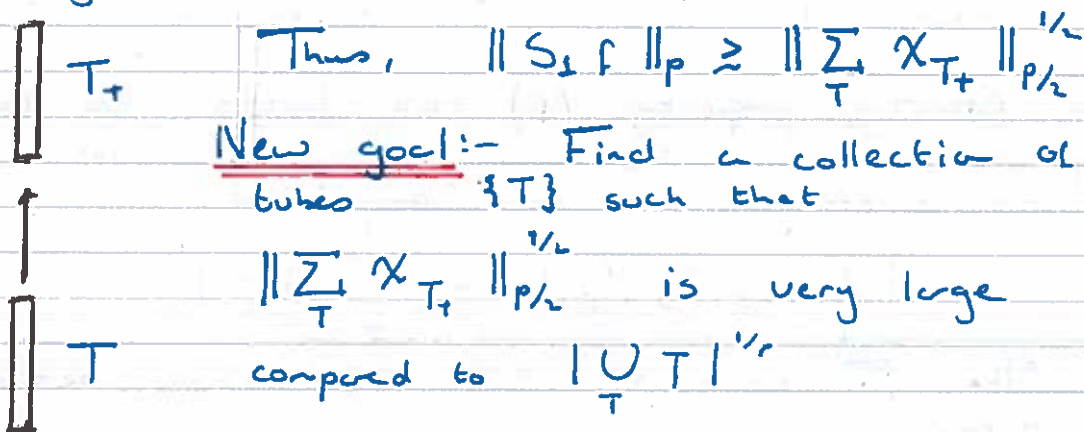 T₊ Thus, ‖ S₁ f ‖_p ≳ ‖ ∑_T χ_{T₊} ‖_{p/2}^{1/2}
New goal:- Find a collection of
tubes {T} such that
‖ ∑_T χ_{T₊} ‖_{p/2}^{1/2} is very large
T compared to | ∪_T T |^{1/p}